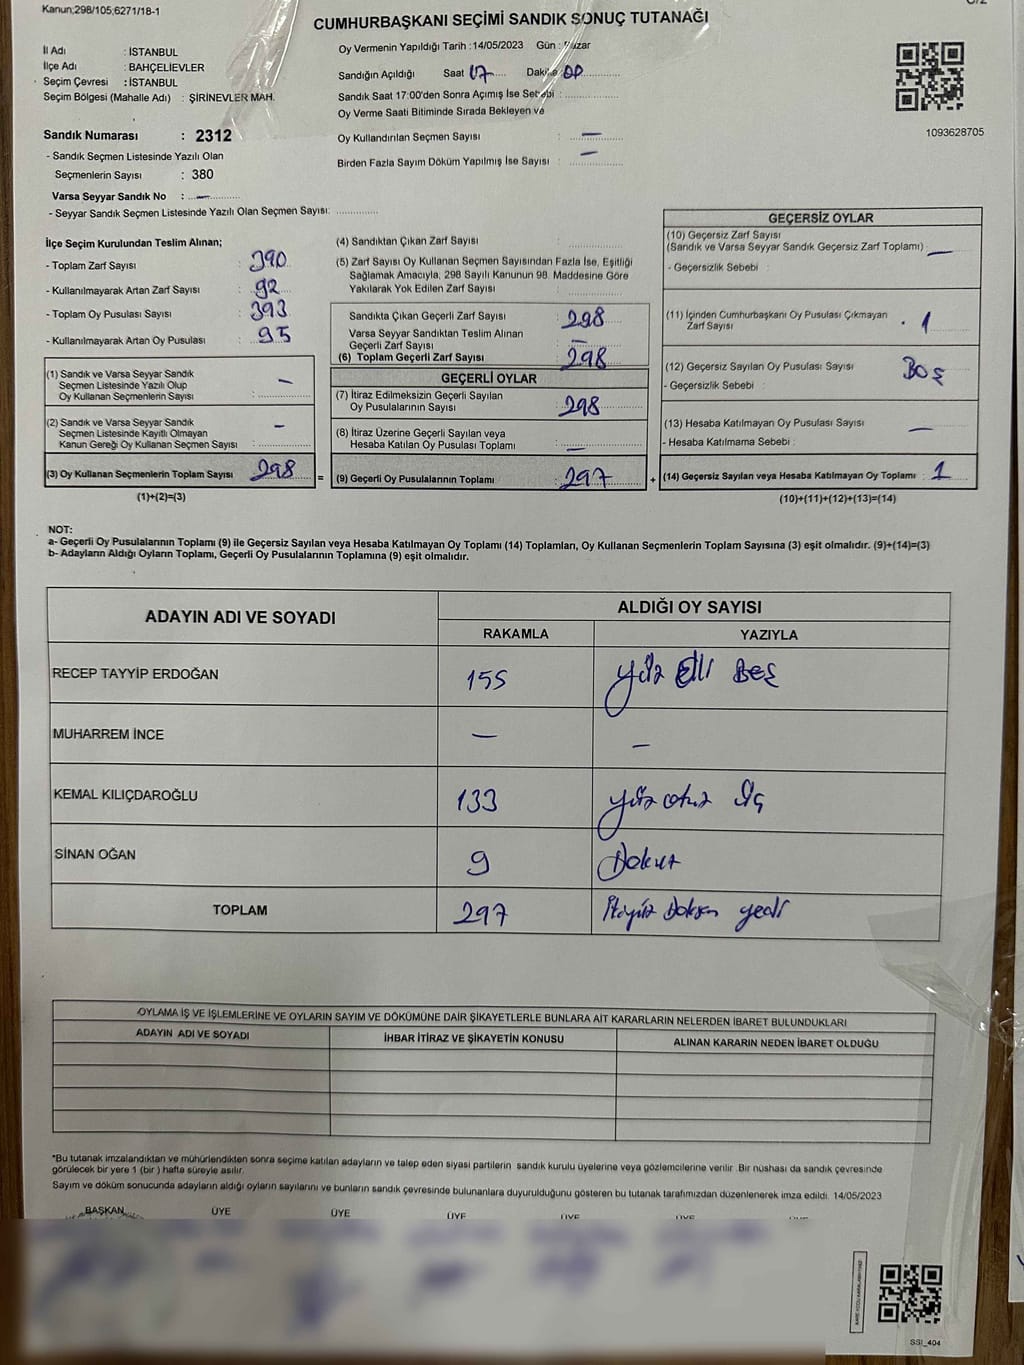 Kanun;298/105;6271/18-1
CUMHURBAŞKANI SEÇİMİ SANDIK SONUÇ TUTANAĞI
İl Adı : İSTANBUL
İlçe Adı : BAHÇELİEVLER
Seçim Çevresi : İSTANBUL
Seçim Bölgesi (Mahalle Adı) : ŞİRİNEVLER MAH.
Oy Vermenin Yapıldığı Tarih :14/05/2023 Gün : Pazar
Sandığın Açıldığı Saat 17 Dakika 00
Sandık Saat 17:00'den Sonra Açımış İse Sebebi :
Oy Verme Saati Bitiminde Sırada Bekleyen ve
Oy Kullandırılan Seçmen Sayısı : —
Birden Fazla Sayım Döküm Yapılmış İse Sayısı : —
1093628705
Sandık Numarası : 2312
- Sandık Seçmen Listesinde Yazılı Olan
Seçmenlerin Sayısı : 380
Varsa Seyyar Sandık No : —
- Seyyar Sandık Seçmen Listesinde Yazılı Olan Seçmen Sayısı:
İlçe Seçim Kurulundan Teslim Alınan;
- Toplam Zarf Sayısı : 390
- Kullanılmayarak Artan Zarf Sayısı : 92
- Toplam Oy Pusulası Sayısı : 393
- Kullanılmayarak Artan Oy Pusulası : 95
(1) Sandık ve Varsa Seyyar Sandık
Seçmen Listesinde Yazılı Olup
Oy Kullanan Seçmenlerin Sayısı : —
(2) Sandık ve Varsa Seyyar Sandık
Seçmen Listesinde Kayıtlı Olmayan
Kanun Gereği Oy Kullanan Seçmen Sayısı : —
(3) Oy Kullanan Seçmenlerin Toplam Sayısı : 298 =
(1)+(2)=(3)
(4) Sandıktan Çıkan Zarf Sayısı :
(5) Zarf Sayısı Oy Kullanan Seçmen Sayısından Fazla İse, Eşitliği
Sağlamak Amacıyla, 298 Sayılı Kanunun 98. Maddesine Göre
Yakılarak Yok Edilen Zarf Sayısı :
Sandıkta Çıkan Geçerli Zarf Sayısı : 298
Varsa Seyyar Sandıktan Teslim Alınan
Geçerli Zarf Sayısı : —
(6) Toplam Geçerli Zarf Sayısı : 298
GEÇERLİ OYLAR
(7) İtiraz Edilmeksizin Geçerli Sayılan
Oy Pusulalarının Sayısı : 298
(8) İtiraz Üzerine Geçerli Sayılan veya
Hesaba Katılan Oy Pusulası Toplamı : —
(9) Geçerli Oy Pusulalarının Toplamı : 297 +
GEÇERSİZ OYLAR
(10) Geçersiz Zarf Sayısı
(Sandık ve Varsa Seyyar Sandık Geçersiz Zarf Toplamı) : —
- Geçersizlik Sebebi :
(11) İçinden Cumhurbaşkanı Oy Pusulası Çıkmayan
Zarf Sayısı : 1
(12) Geçersiz Sayılan Oy Pusulası Sayısı : BOŞ
- Geçersizlik Sebebi :
(13) Hesaba Katılmayan Oy Pusulası Sayısı : —
- Hesaba Katılmama Sebebi :
(14) Geçersiz Sayılan veya Hesaba Katılmayan Oy Toplamı : 1
(10)+(11)+(12)+(13)=(14)
NOT:
a- Geçerli Oy Pusulalarının Toplamı (9) ile Geçersiz Sayılan veya Hesaba Katılmayan Oy Toplamı (14) Toplamları, Oy Kullanan Seçmenlerin Toplam Sayısına (3) eşit olmalıdır. (9)+(14)=(3)
b- Adayların Aldığı Oyların Toplamı, Geçerli Oy Pusulalarının Toplamına (9) eşit olmalıdır.
ADAYIN ADI VE SOYADI
ALDIĞI OY SAYISI
RAKAMLA YAZIYLA
RECEP TAYYİP ERDOĞAN 155 yüz Elli BEŞ
MUHARREM İNCE — —
KEMAL KILIÇDAROĞLU 133 yüz otuz üç
SİNAN OĞAN 9 Dokuz
TOPLAM 297 İkiyüz Doksan yedi
OYLAMA İŞ VE İŞLEMLERİNE VE OYLARIN SAYIM VE DÖKÜMÜNE DAİR ŞİKAYETLERLE BUNLARA AİT KARARLARIN NELERDEN İBARET BULUNDUKLARI
ADAYIN ADI VE SOYADI İHBAR İTİRAZ VE ŞİKAYETİN KONUSU ALINAN KARARIN NEDEN İBARET OLDUĞU
*Bu tutanak imzalandıktan ve mühürlendikten sonra seçime katılan adayların ve talep eden siyasi partilerin sandık kurulu üyelerine veya gözlemcilerine verilir .Bir nüshası da sandık çevresinde
görülecek bir yere 1 (bir ) hafta süreyle asılır.
Sayım ve döküm sonucunda adayların aldığı oyların sayılarını ve bunların sandık çevresinde bulunanlara duyurulduğunu gösteren bu tutanak tarafımızdan düzenlenerek imza edildi. 14/05/2023
BAŞKAN ÜYE ÜYE ÜYE ÜYE ÜYE ÜYE
SSI_404